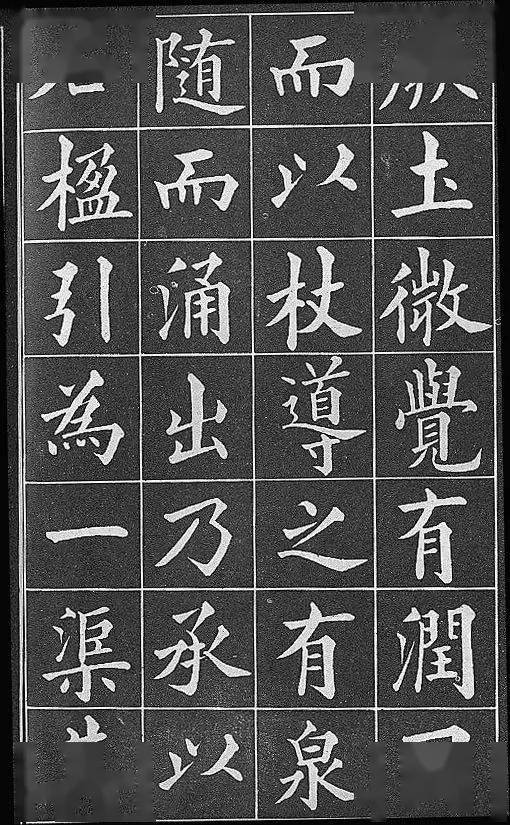 土微覺有潤
而以杖導之有泉
隨而涌出乃承以
楹引為一渠